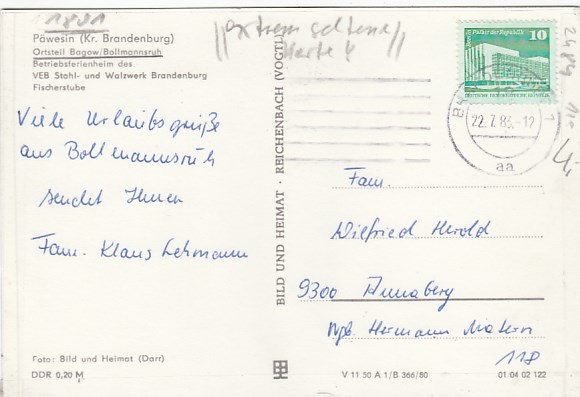 1801
Päwesin (Kr. Brandenburg)
Ortsteil Bagow/Bollmannsruh
Betriebsferienheim des
VEB Stahl- und Walzwerk Brandenburg
Fischerstube
"extrem seltene
Karte!!"
Viele Urlaubsgrüße
aus Bollmannsruh
sendet Ihnen
Fam. Klaus Lehmann
Foto: Bild und Heimat (Darr)
DDR 0,20 M
BILD UND HEIMAT · REICHENBACH (VOGTL)
Palast der Republik
10
DEUTSCHE DEMOKRATISCHE REPUBLIK
22.7.83.-12
aa
Fam.
Wilfried Herold
9300 Annaberg
Wgb. Hermann Matern
118
V 11 50 A 1/B 366/80
01 04 02 122